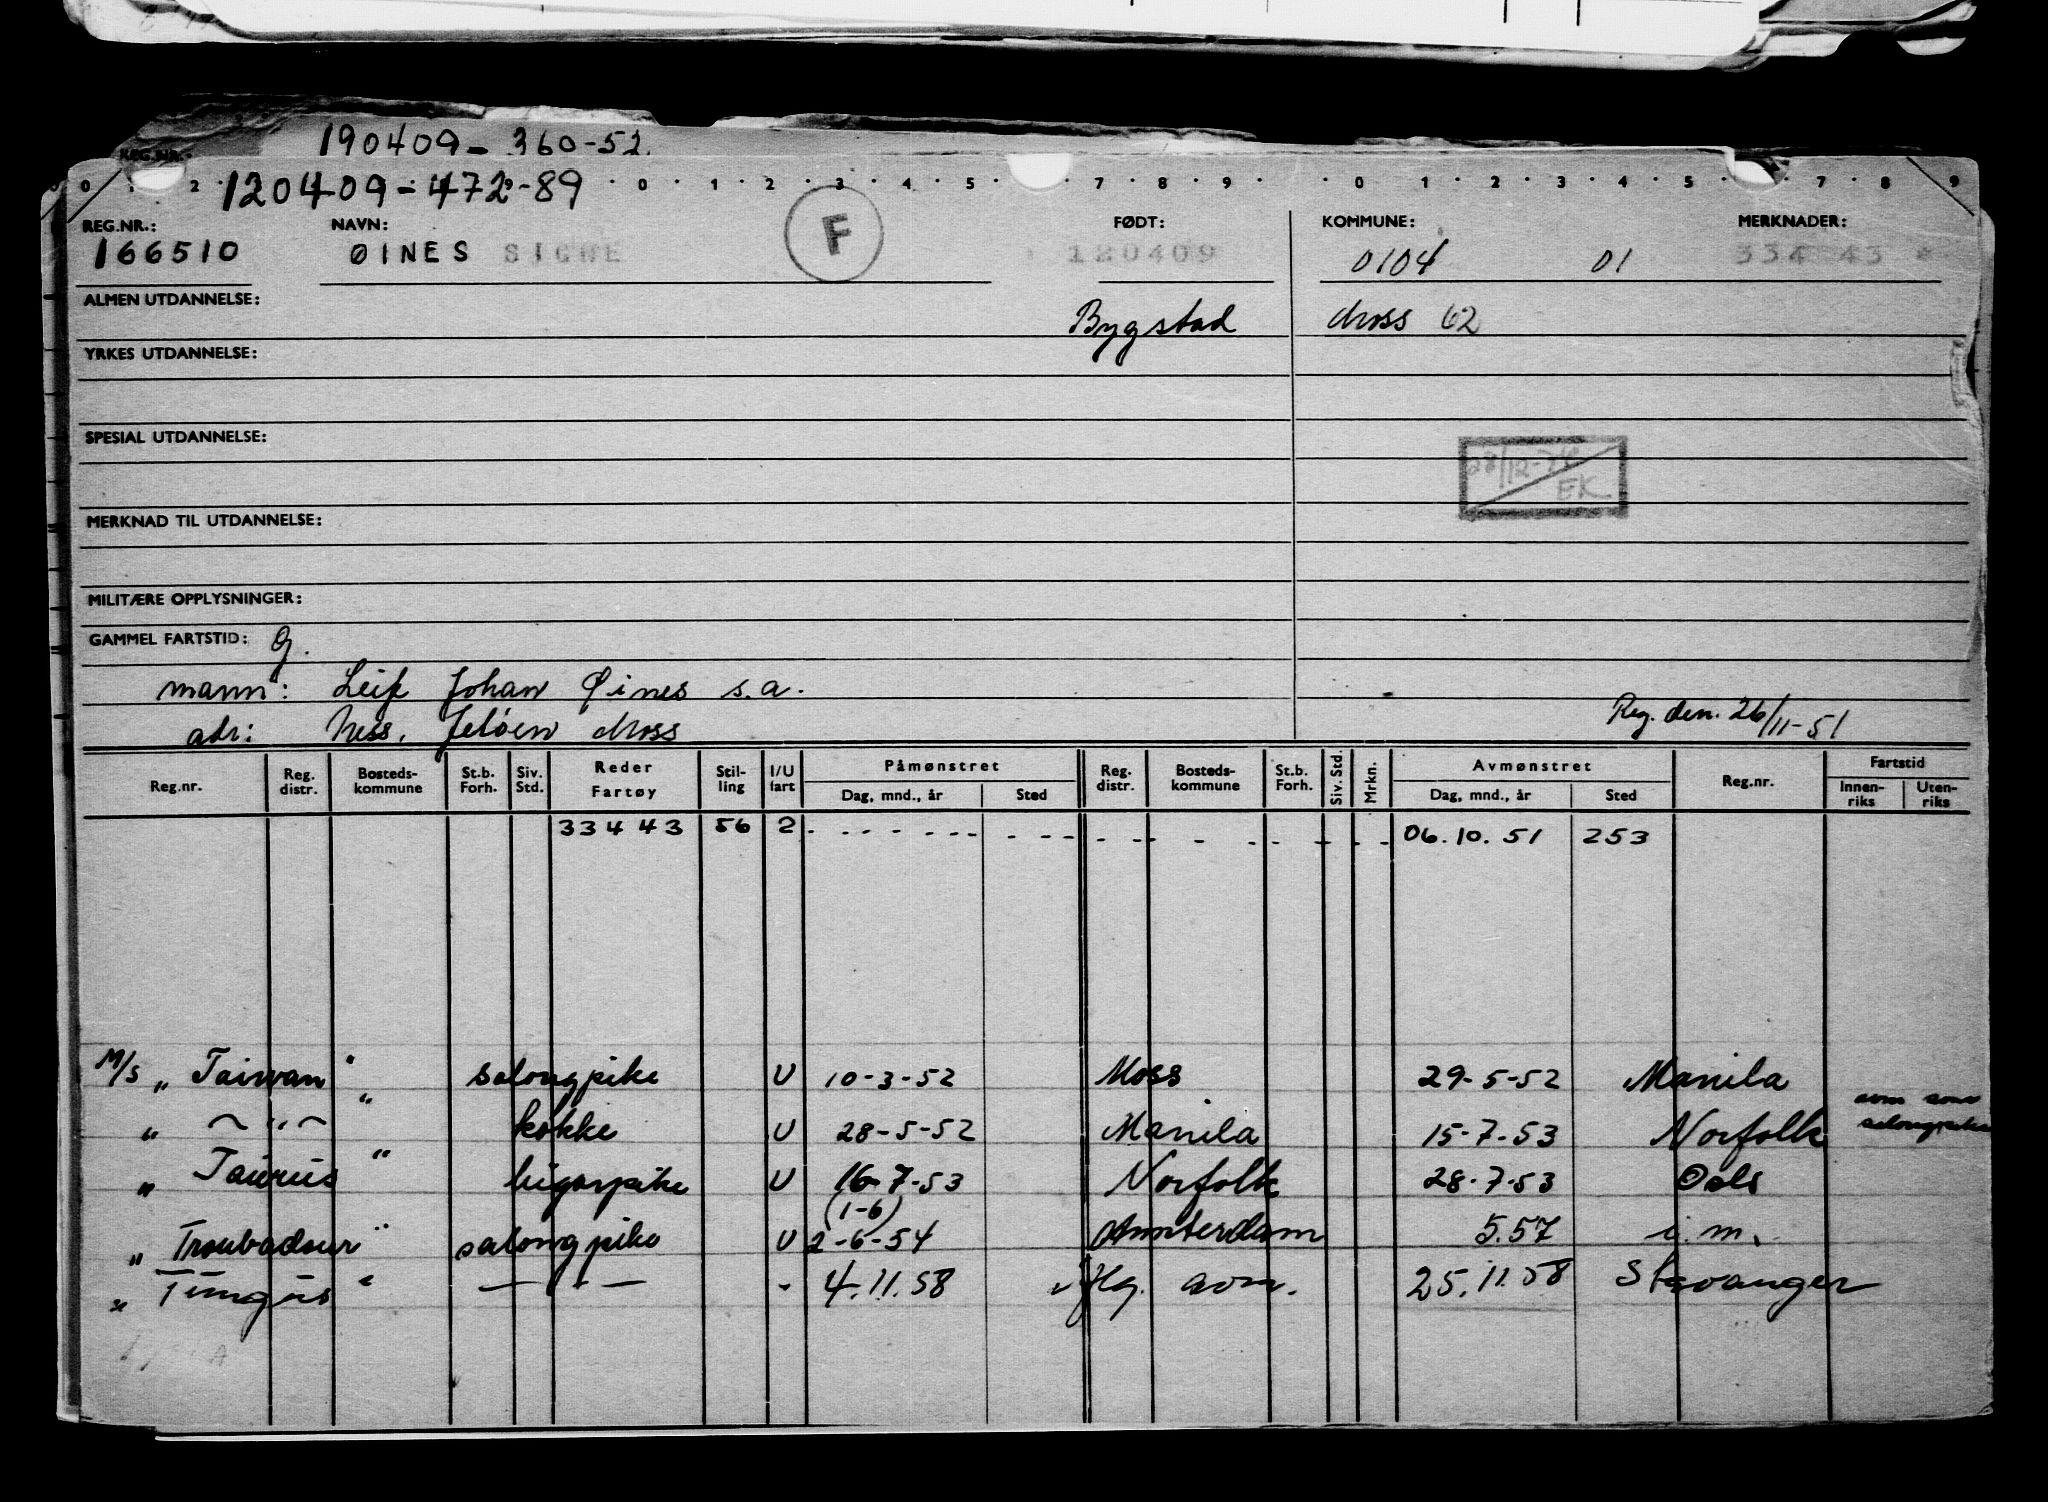 190409-360-52.
REG.NR.:
120409-472-89
0 1 2 0 1 2 3 4 5 7 8 9 0 1 2 3 4 5 7 8 9
REG.NR.: NAVN: FØDT: KOMMUNE: MERKNADER:
166510 ØINES SIGNE F 120409 0104 01 334 43 *
ALMEN UTDANNELSE:
Bygstad Moss 62
YRKES UTDANNELSE:
SPESIAL UTDANNELSE:
28/12-74
EK
MERKNAD TIL UTDANNELSE:
MILITÆRE OPPLYSNINGER:
GAMMEL FARTSTID: G.
mann: Leif Johan Øines s.a.
adr: Ness, Jeløen Moss
Reg. den. 26/11-51
Reg.nr. Reg. distr. Bosteds-kommune St.b. Forh. Siv. Std. Reder Fartøy Stil-ling I/U fart Påmønstret Dag, mnd., år Sted Reg. distr. Bosteds-kommune St.b. Forh. Siv. Std. Mrkn. Avmønstret Dag, mnd., år Sted Reg.nr. Fartstid Innen-riks Uten-riks
33443 56 2 06.10.51 253
M/S "Taiwan" salongpike U 10-3-52 Moss 29-5-52 Manila
" — " — " kokke U 28-5-52 Manila 15-7-53 Norfolk avm som salongpike
" Taurus " bysspike U 16-7-53 Norfolk 28-7-53 Oslo
(1-6)
" Troubadour " salongpike U 2-6-54 Amsterdam 5.57 i.m.
" Tungus " — " — - 4.11.58 Hg. avm. 25.11.58 Stavanger